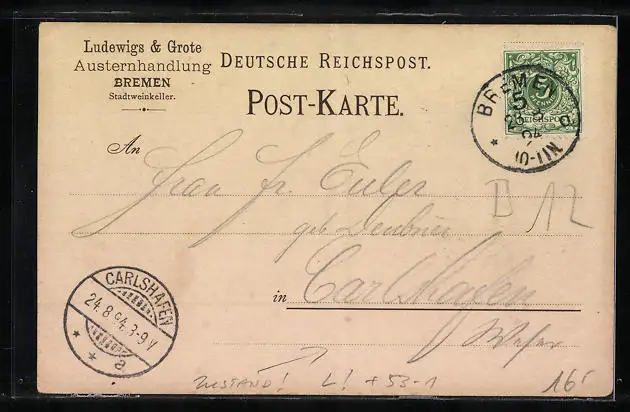 Ludewigs & Grote
Austernhandlung
BREMEN
Stadtweinkeller.
DEUTSCHE REICHSPOST.
POST-KARTE.
BREMEN
5
REICHSPOST
An
Frau Fr. Euler
geb
in Carlshafen
Weser
B 12
CARLSHAFEN
24.8.94.8-9V
a
ZUSTAND! L! +53-1
16,-